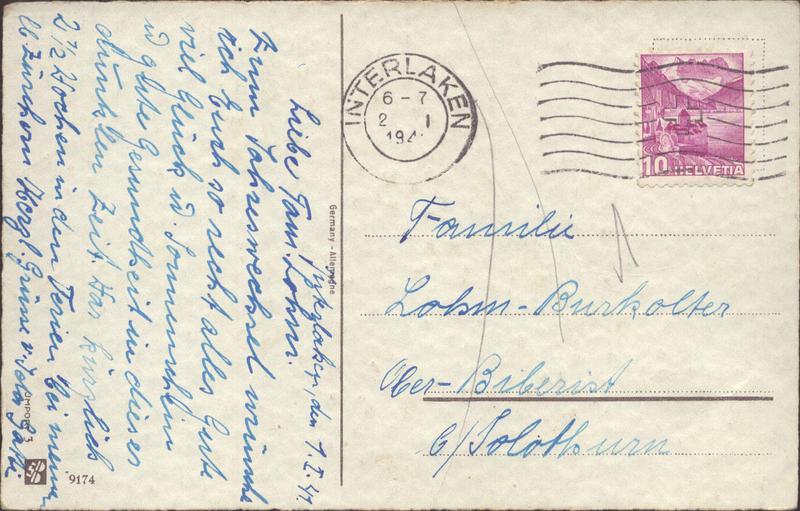 den 1.I.41.
Liebe Fam. Lohm.
Zum Jahreswechsel wünsche
ich Euch so recht alles Gute
viel Glück u. Sonnenschein
u. gute Gesundheit in dieser
dunklen Zeit. War kürzlich
2 1/2 Wochen in den Ferien bei meinen
Herzl. Grüsse v.
Germany - Allemagne
IMPORT
9174
INTERLAKEN
6-7
2 I
194
10 HELVETIA
Familie
Lohm-Burkolter
Ober-Biberist
b/Solothurn